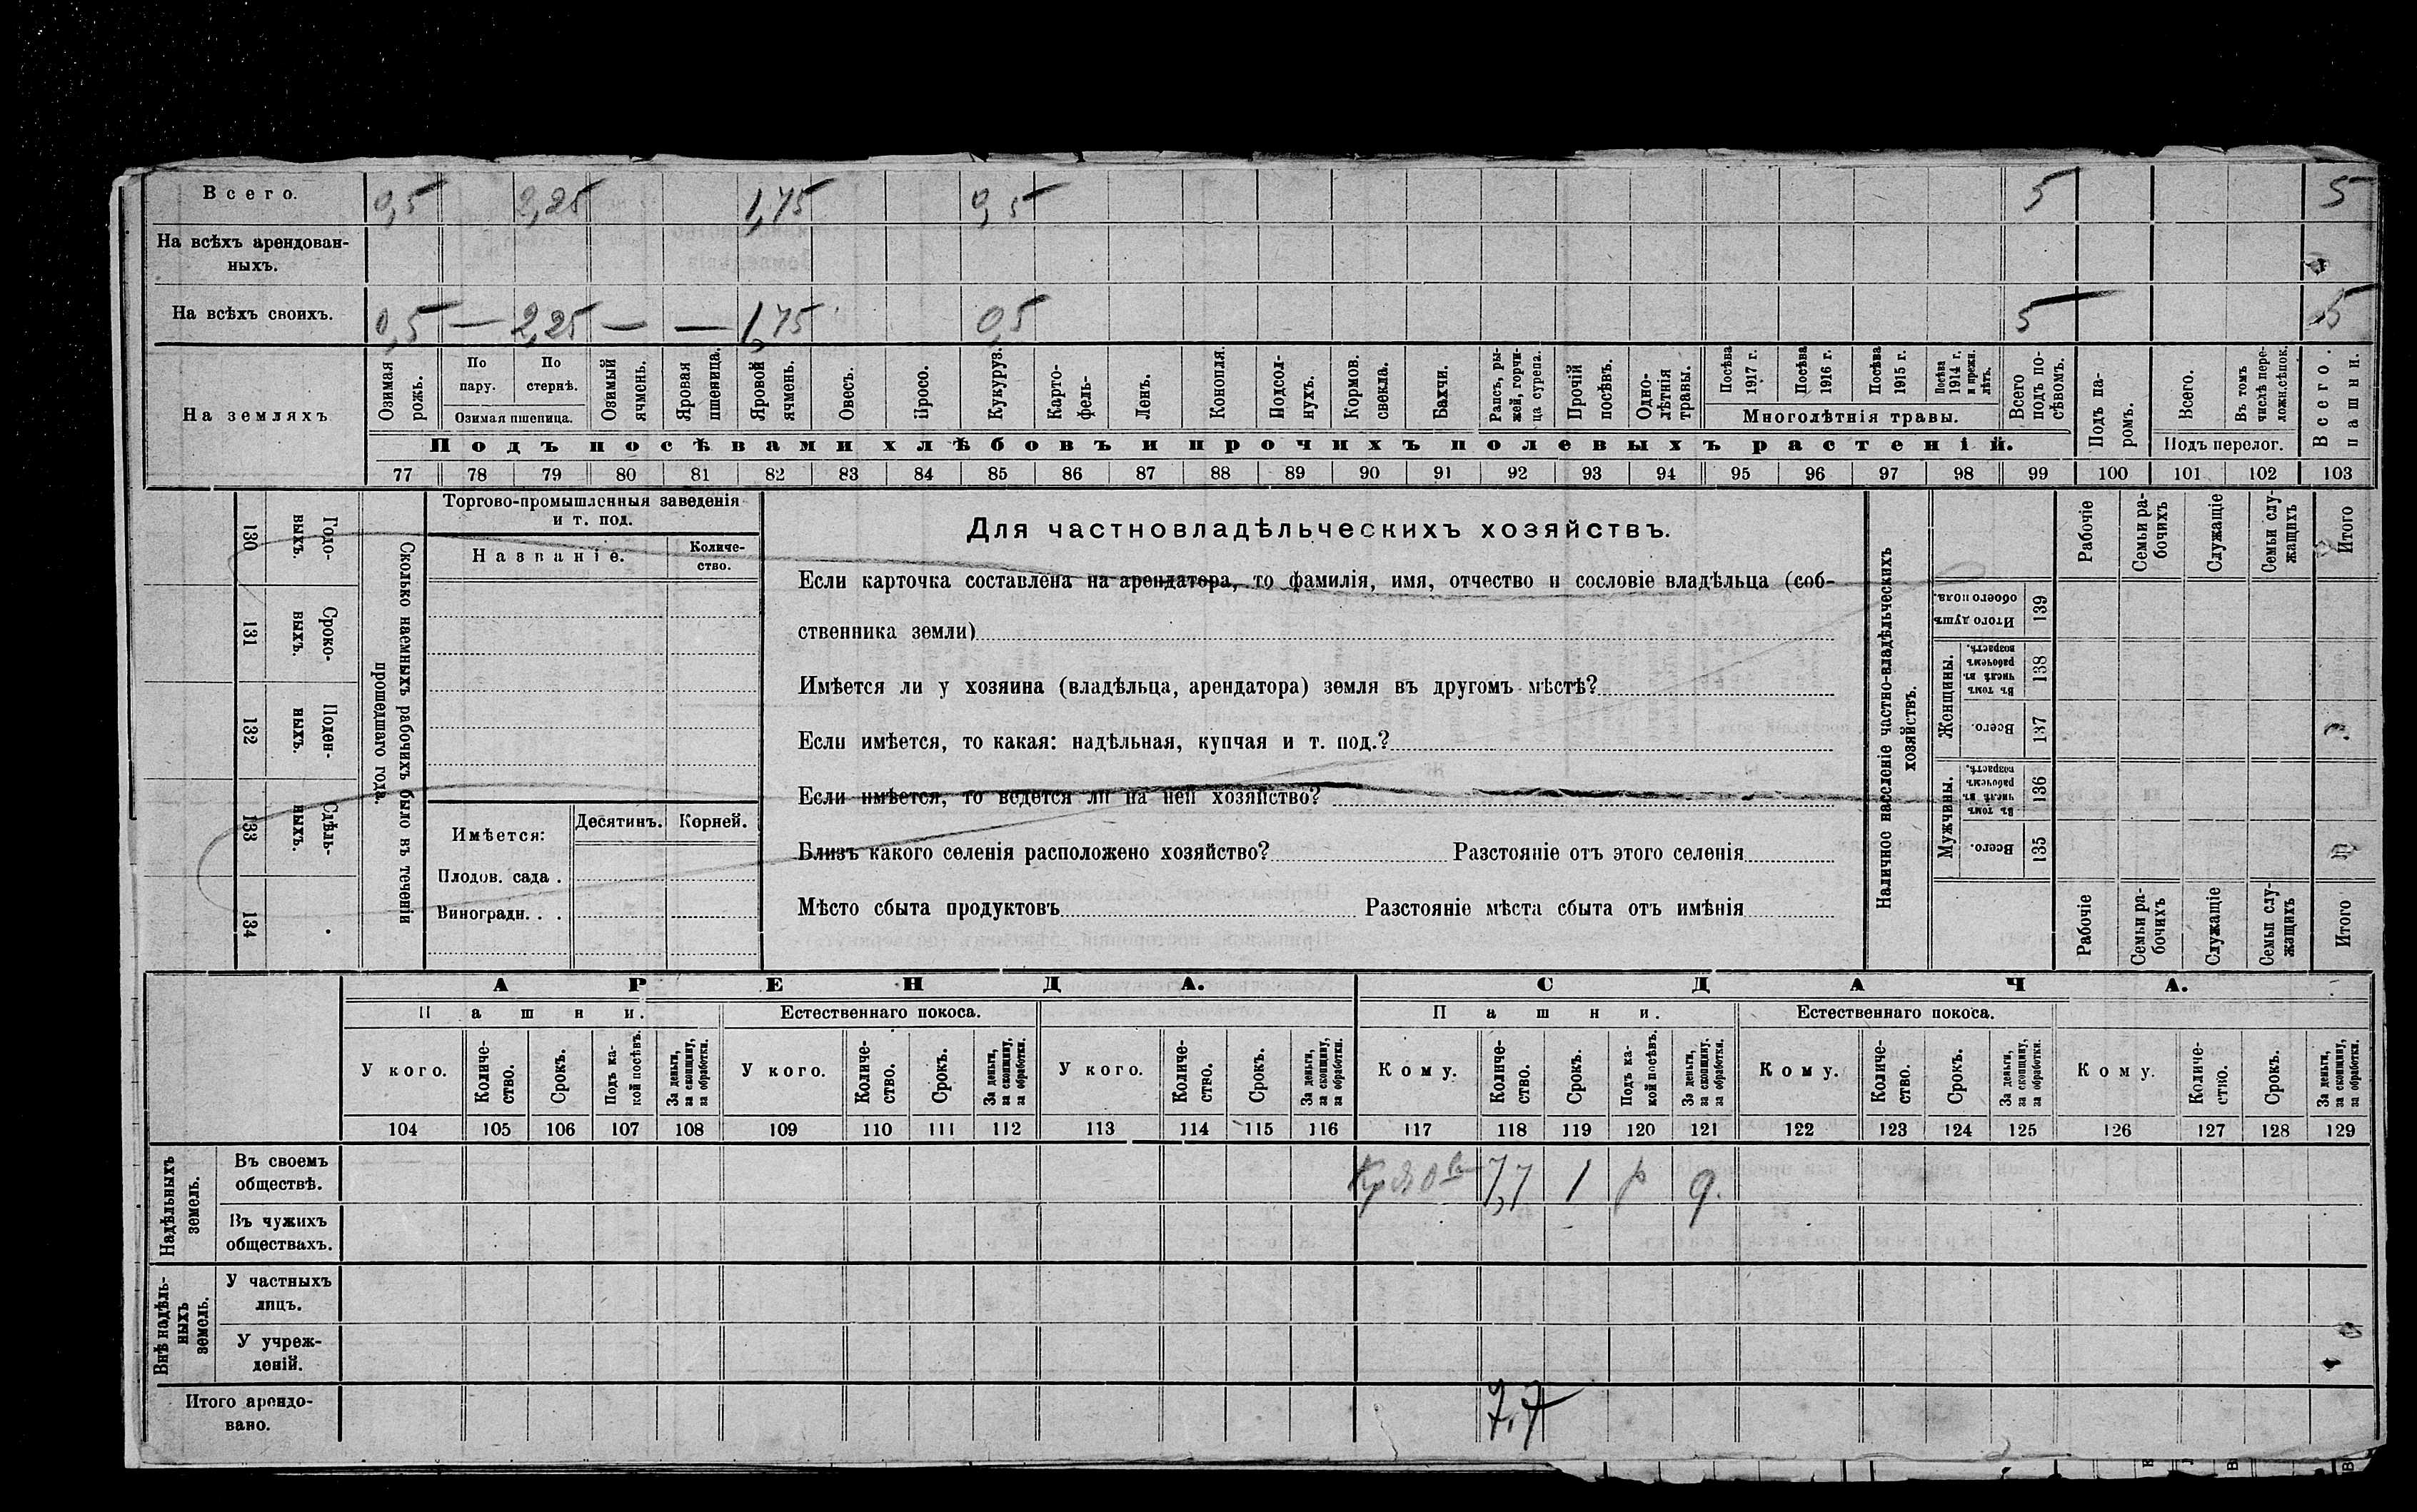 Всего. 0,5 2,25 1,75 0,5 5 5
На всѣхъ арендован-
ныхъ.
На всѣхъ своихъ. 0,5 — 2,25 — — 1,75 0,5 5 5
На земляхъ
Озимая рожь.
По пару.
По стернѣ.
Озимая пшеница.
Озимый ячмень.
Яровая пшеница.
Яровой ячмень.
Овесъ.
Просо.
Кукуруз.
Карто-
фель-
Ленъ.
Конопля.
Подсол-
нухъ.
Кормов. свекла.
Бахчи.
Рапсъ, ры-
жей, горчи-
ца сурепа.
Прочій посѣвъ.
Одно-
лѣтнія травы.
Посѣва 1917 г.
Посѣва 1916 г.
Посѣва 1915 г.
Посѣва 1914 г. и прежн. лѣтъ.
Многолѣтнія травы.
Всего подъ по-
сѣвомъ.
Подъ па-
ромъ.
Всего.
Въ томъ числѣ пере-
ложн.сѣнок.
Подъ перелог.
Всего пашни.
Подъ посѣвами хлѣбовъ и прочихъ полевыхъ растеній.
77 78 79 80 81 82 83 84 85 86 87 88 89 90 91 92 93 94 95 96 97 98 99 100 101 102 103
130 131 132 133 134
Годо-
выхъ.
Сроко-
выхъ.
Поден-
ныхъ.
Сдѣль-
ныхъ.
Сколько наемныхъ рабочихъ было въ теченіи
прошедшаго года.
Торгово-промышленныя заведенія
и т. под.
Названіе.
Количе-
ство.
Имѣется:
Десятинъ. Корней.
Плодов. сада .
Виноградн. . .
Для частновладѣльческихъ хозяйствъ.
Если карточка составлена на арендатора, то фамилія, имя, отчество и сословіе владѣльца (соб-
ственника земли)
Имѣется ли у хозяина (владѣльца, арендатора) земля въ другомъ мѣстѣ?
Если имѣется, то какая: надѣльная, купчая и т. под.?
Если имѣется, то ведется ли на ней хозяйство?
Близъ какого селенія расположено хозяйство? Разстояніе отъ этого селенія
Мѣсто сбыта продуктовъ Разстояніе мѣста сбыта отъ имѣнія
Наличное населеніе частно-владѣльческихъ
хозяйствъ.
Рабочіе
Семьи ра-
бочихъ
Служащіе
Семьи слу-
жащихъ
Итого
Итого душъ обоего пола. 139
Женщины.
Въ томъ числѣ въ рабочемъ возрастѣ. 138
Всего. 137
Мужчины.
Въ томъ числѣ въ рабочемъ возрастѣ. 136
Всего. 135
Рабочіе
Семьи ра-
бочихъ
Служащіе
Семьи слу-
жащихъ
Итого
АРЕНДА. СДАЧА.
Пашни. Естественнаго покоса. Пашни. Естественнаго покоса.
У кого.
Количе-
ство.
Срокъ.
Подъ ка-
кой посѣвъ.
За деньги, за скопщину, за обработки.
У кого.
Количе-
ство.
Срокъ.
За деньги, за скопщину, за обработки.
У кого.
Количе-
ство.
Срокъ.
За деньги, за скопщину, за обработки.
Кому.
Количе-
ство.
Срокъ.
Подъ ка-
кой посѣвъ.
За деньги, за скопщину. за обработки.
Кому.
Количе-
ство.
Срокъ.
За деньги, за скопщину, за обработки.
Кому.
Количе-
ство.
Срокъ.
За деньги, за скопщину, за обработки.
104 105 106 107 108 109 110 111 112 113 114 115 116 117 118 119 120 121 122 123 124 125 126 127 128 129
Надѣльныхъ земель.
Въ своемъ
обществѣ. 7,7 1
Въ чужихъ
обществахъ.
Внѣ надѣль-
ныхъ земель.
У частныхъ
лицъ.
У учреж-
деній.
Итого арендо-
вано. 7,7